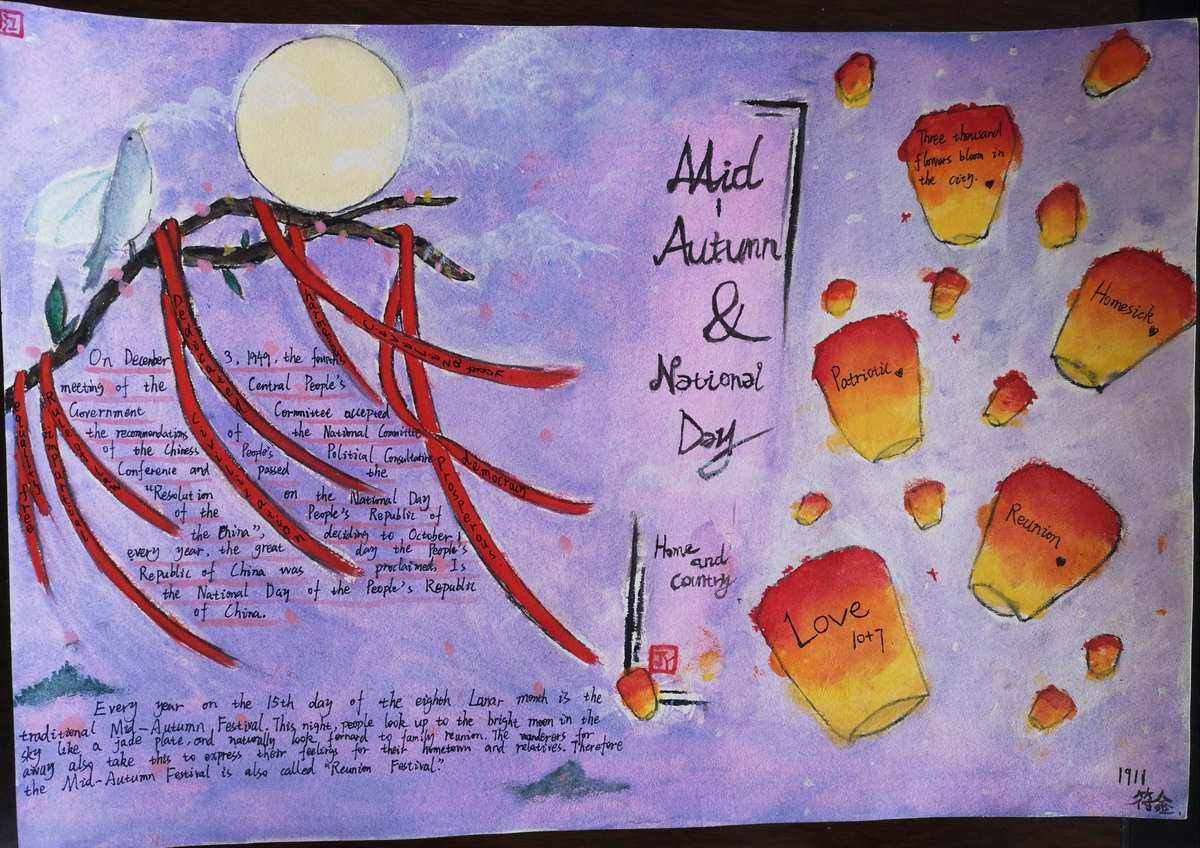 江
Mid
-
Autumn
&
National
Day
Home
and
Country
On December 3, 1949, the fourth
meeting of the Central People's
Government Committee accepted
the recommendations of the National Committee
of the Chiness People's Political Consultative
Conference and passed the
"Resolution on the National Day
of the People's Republic of
the China", deciding to October 1
every year, the great day the People's
Republic of China was proclaimed, Is
the National Day of the People's Republic
of China.
equality free
Rule of law
Dedicated
civilization
democracy
prosperous
Every year on the 15th day of the eighth Lunar month is the
traditional Mid-Autumn Festival. This night, people look up to the bright moon in the
sky like a jade plate, and naturally look forward to family reunion. The wanderers far
away also take this to express their feelings for their hometown and relatives. Therefore
the Mid-Autumn Festival is also called "Reunion Festival."
Three thousand
flowers bloom in
the city.
Homesick
Patriotic
Reunion
Love
10+7
1911
符金